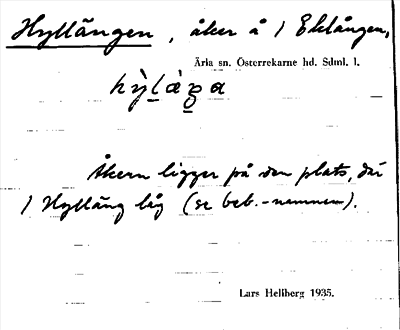 Hyllängen, åker å 1 Eklången,
Ärla sn. Österrekarne hd. Sdml. l.
Åkern ligger på den plats, där
1 Hylläng låg (se beb.-namnen).
Lars Hellberg 1935.